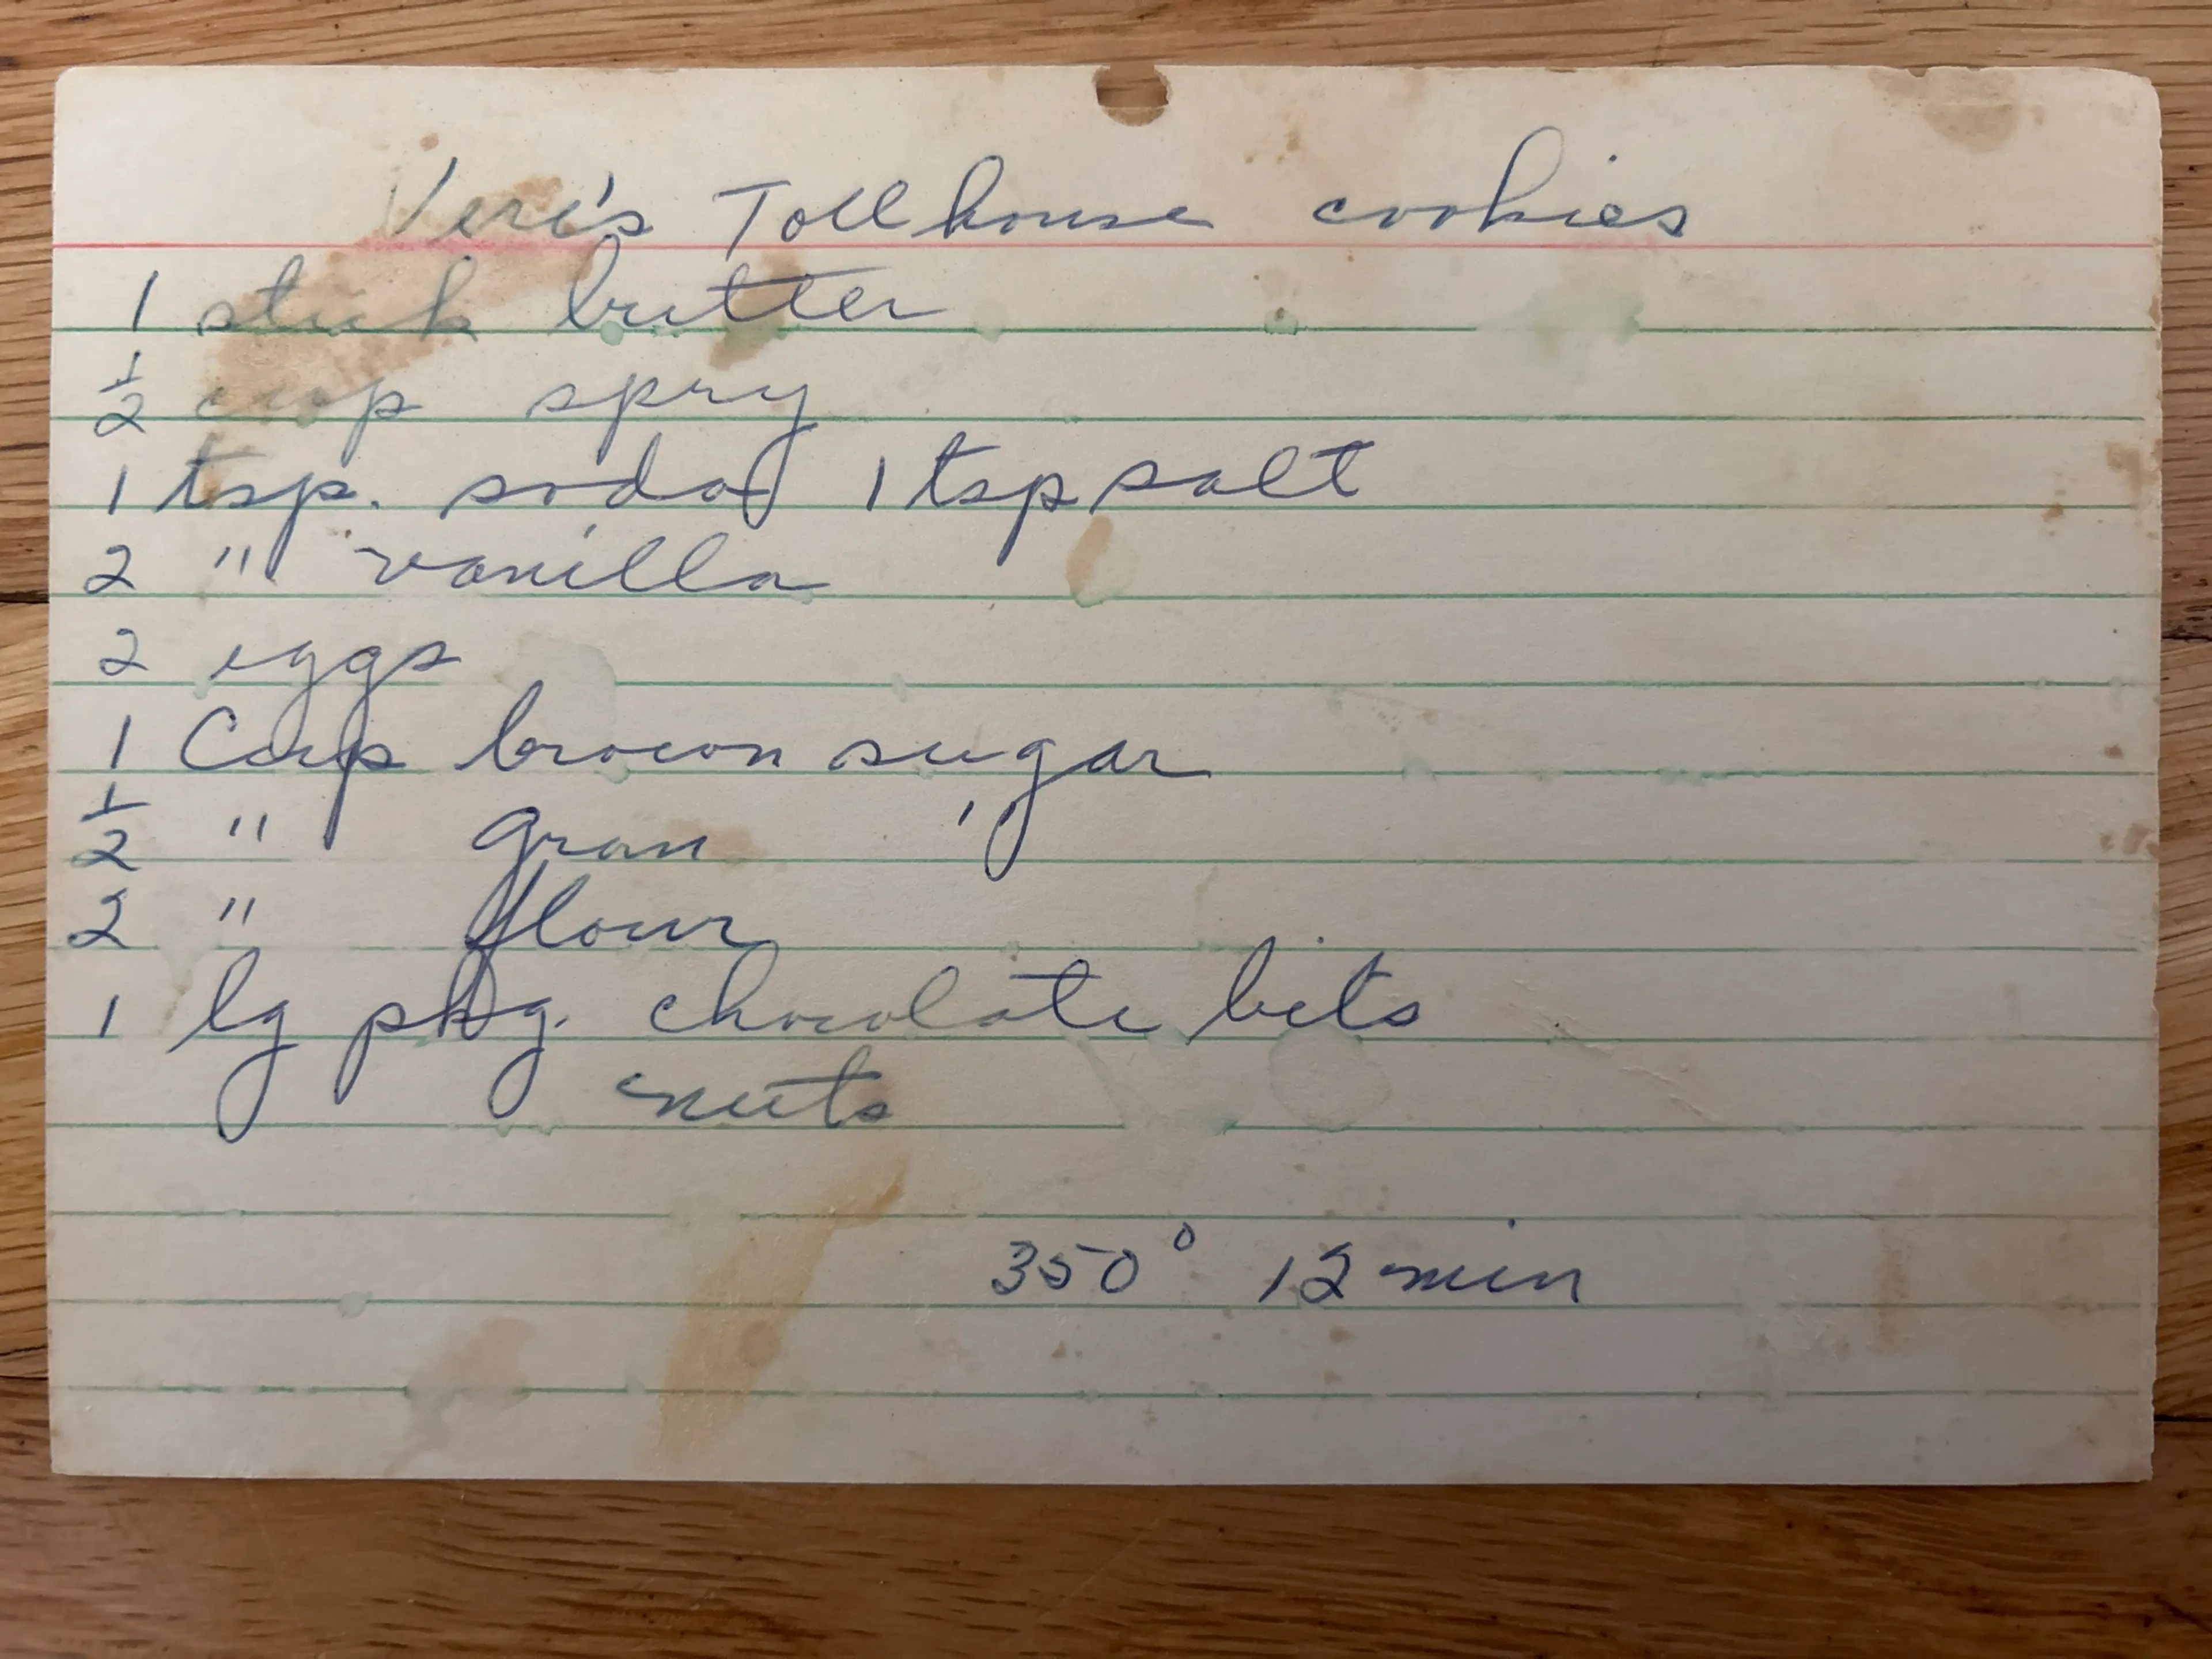 Veri's Tollhouse cookies
1 stick butter
½ cup spry
1 tsp. soda 1 tsp salt
2 " vanilla
2 eggs
1 Cup brown sugar
½ " gran "
2 " flour
1 lg pkg. chocolate bits
nuts
350° 12 min